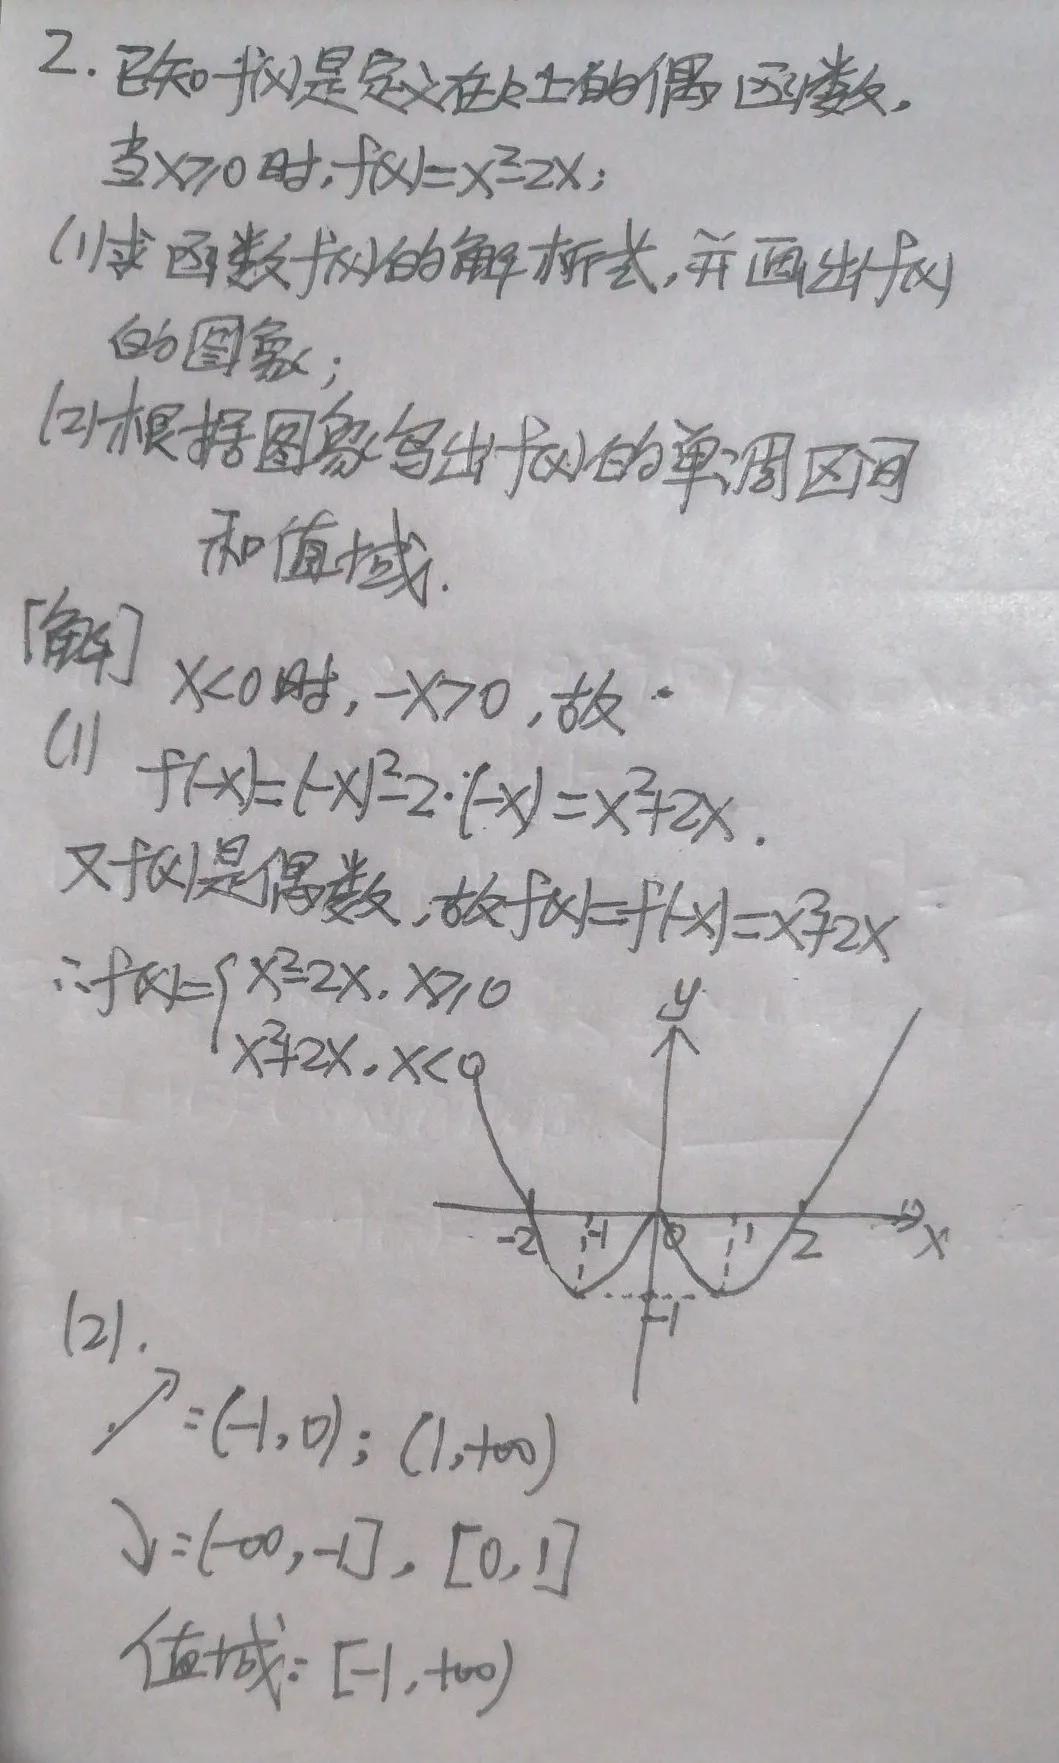 2.已知f(x)是定义在R上的偶函数,
当x≥0时,f(x)=x²-2x;
(1)求函数f(x)的解析式,并画出f(x)
的图象;
(2)根据图象写出f(x)的单调区间
和值域.
[解]
(1) x<0时,-x>0,故
f(-x)=(-x)²-2·(-x)=x²+2x.
又f(x)是偶数,故f(x)=f(-x)=x²+2x
∴f(x)={x²-2x. x≥0
x²+2x. x<0
y
-2 -1 0 1 2 x
-1
(2).
↗=(-1,0);(1,+∞)
↘=(-∞,-1],[0,1]
值域=[-1,+∞)